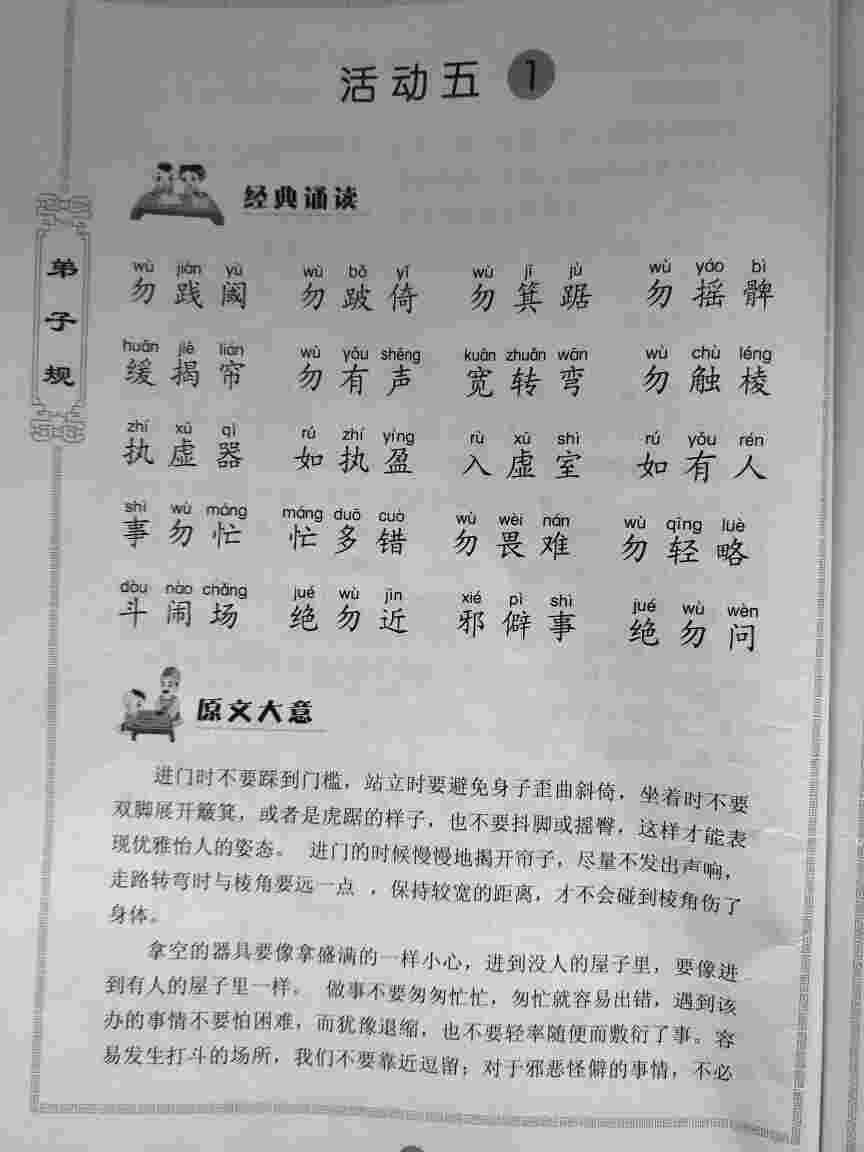 活动五 1
经典诵读
弟子规
wù jiàn yù wù bǒ yǐ wù jī jù wù yáo bì
勿践阈 勿跛倚 勿箕踞 勿摇髀
huǎn jiē lián wù yǒu shēng kuān zhuǎn wān wù chù léng
缓揭帘 勿有声 宽转弯 勿触棱
zhí xū qì rú zhí yíng rù xū shì rú yǒu rén
执虚器 如执盈 入虚室 如有人
shì wù máng máng duō cuò wù wèi nán wù qīng luè
事勿忙 忙多错 勿畏难 勿轻略
dòu nào chǎng jué wù jìn xié pì shì jué wù wèn
斗闹场 绝勿近 邪僻事 绝勿问
原文大意
进门时不要踩到门槛，站立时要避免身子歪曲斜倚，坐着时不要
双脚展开簸箕，或者是虎踞的样子，也不要抖脚或摇臀，这样才能表
现优雅怡人的姿态。 进门的时候慢慢地揭开帘子，尽量不发出声响，
走路转弯时与棱角要远一点 ，保持较宽的距离，才不会碰到棱角伤了
身体。
拿空的器具要像拿盛满的一样小心，进到没人的屋子里，要像进
到有人的屋子里一样。 做事不要匆匆忙忙，匆忙就容易出错，遇到该
办的事情不要怕困难，而犹豫退缩，也不要轻率随便而敷衍了事。容
易发生打斗的场所，我们不要靠近逗留；对于邪恶怪僻的事情，不必